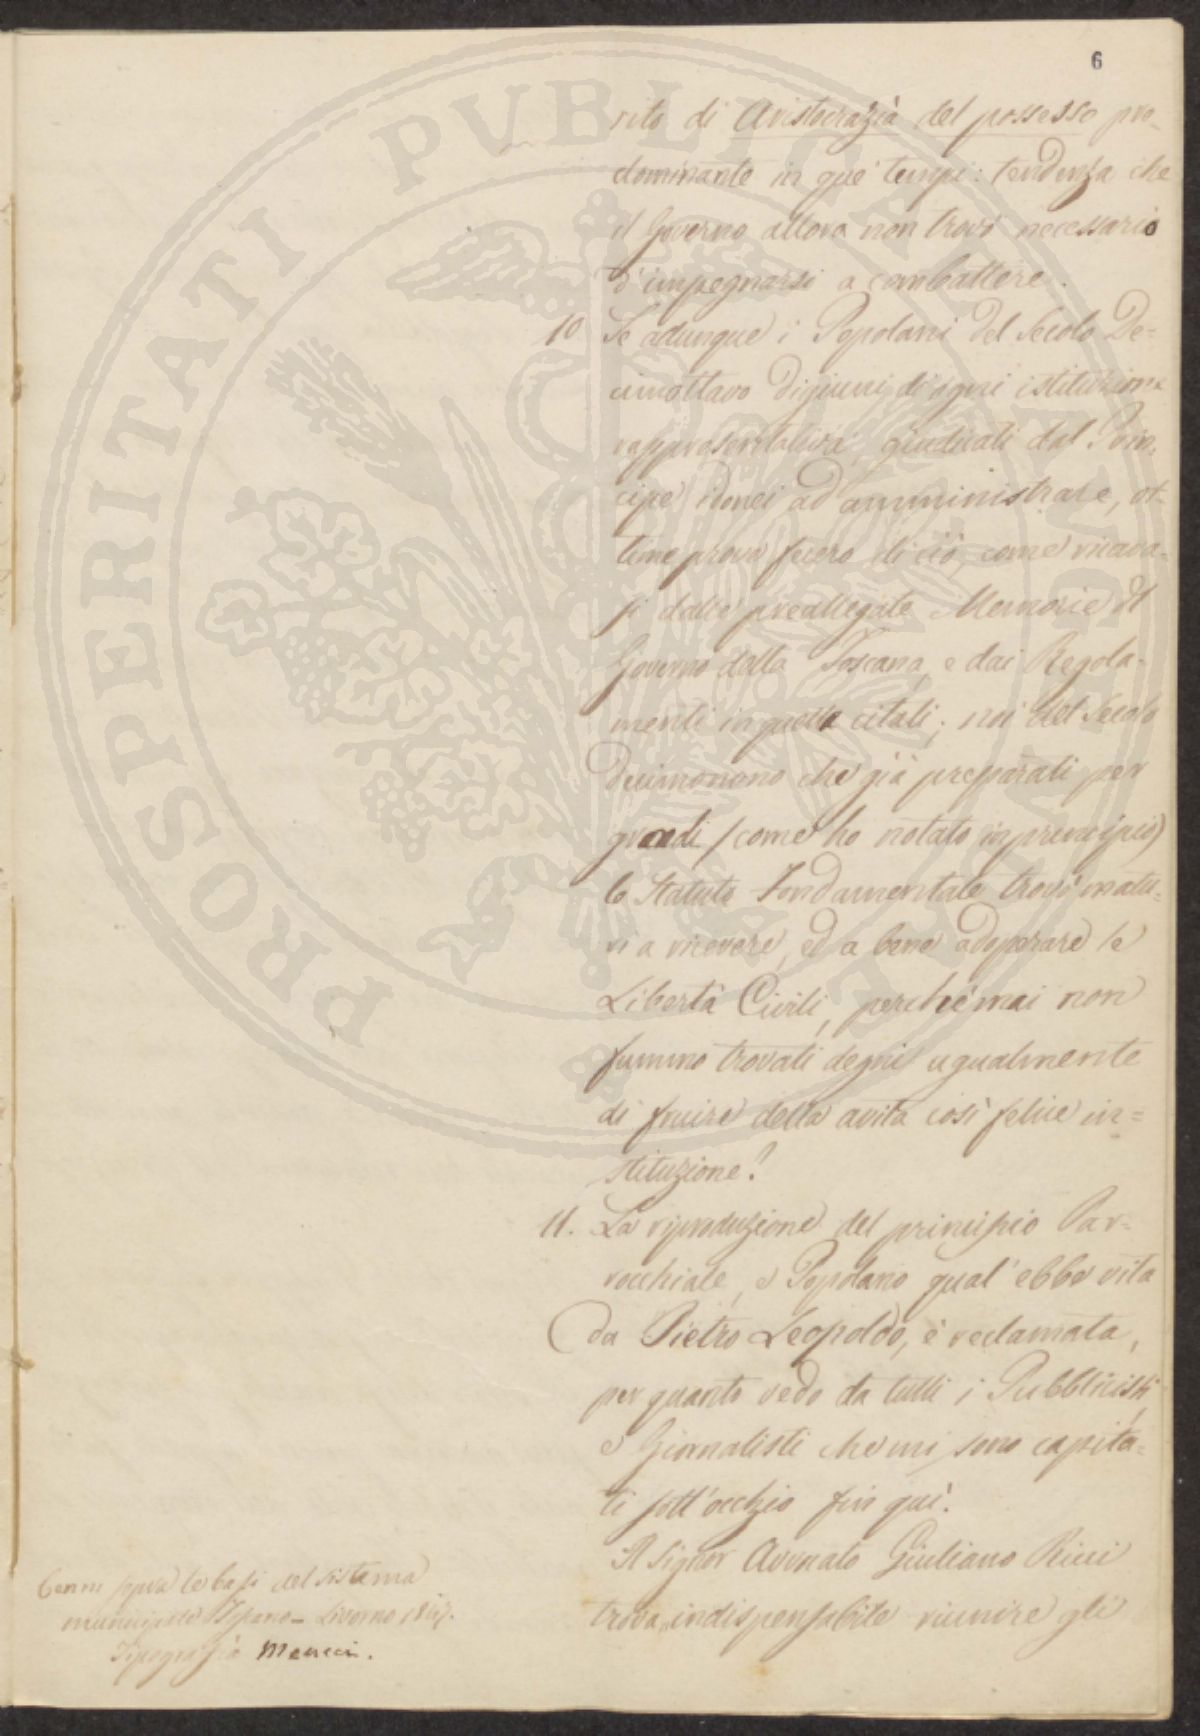 6
rito di Aristocrazia del possesso pre-
dominante in que' tempi: tendenza che
il Governo allora non trovò necessario
d'impegnarsi a combattere.
10. Se adunque i Popolani del Secolo De-
cimottavo digiuni di ogni istituzione
rappresentativa, giudicati dal Prin-
cipe idonei ad amministrare, ot-
time prova fecero di ciò, come ricava-
si dalle preallegate Memorie del
Governo della Toscana, e dai Regola-
menti in quella citati; noi del Secolo
decimonono che già preparati per
gradi (come ho notato in principio)
lo Statuto Fondamentale trovò matu-
ri a ricevere, ed a bene adoperare le
Libertà Civili, perchè mai non
fummo trovati degni ugualmente
di fruire della avita così felice in=
stituzione?
11. La riproduzione del principio Par=
rocchiale, e Popolano qual' ebbe vita
da Pietro Leopoldo, è reclamata,
per quanto vedo da tutti i Pubblicisti,
e Giornalisti che mi sono capita=
ti sott'occhio fin qui.
Il Signor Avvocato Giuliano Ricci
trova indispensabile riunire gli
Cenni sopra le basi del sistema
municipale Livorno 1847.
Tipografia Meucci.
PROSPERITATI PVBLICAE